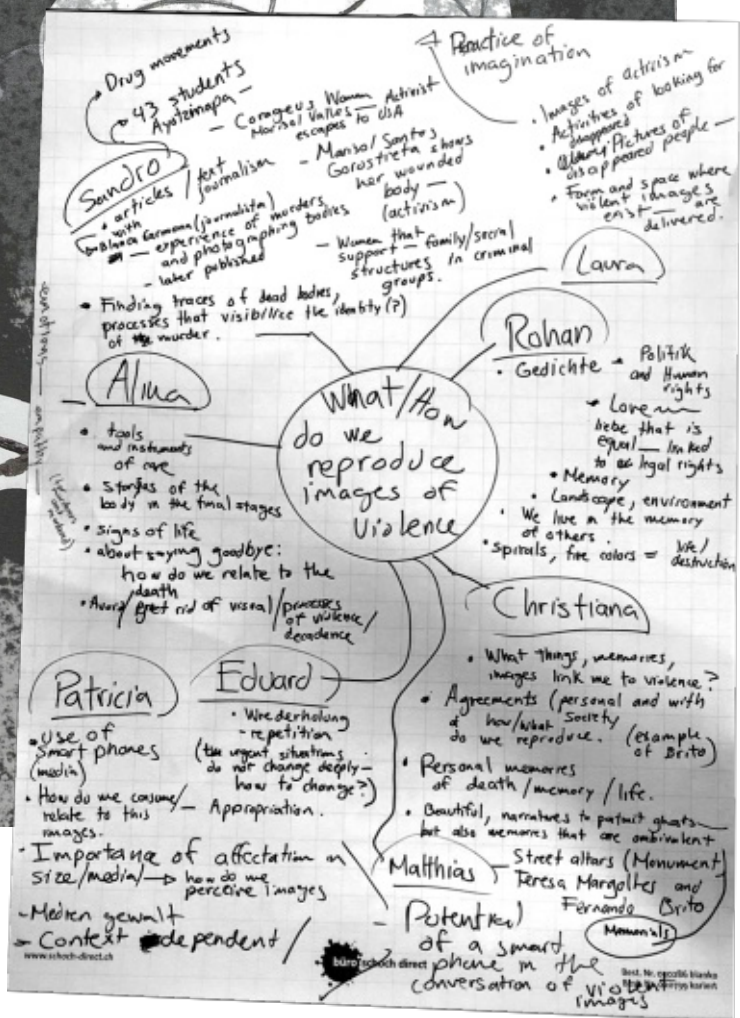 Drug movements
43 students
Ayotzinapa —
— Corageus Woman
Marisol Valles — Activist
escapes to USA
— Marisol Santos
Gorostreta shows
her wounded
body —
(activism)
Sandro
• articles / text
journalism
with
Blanca Carmona (journalista)
— experience of murders
and photographing bodies
— later published
— Women that
support — family/social
structures in criminal
groups.
• Finding traces of dead bodies,
processes that visibilice the identity (?)
of murder.
Practice of
imagination
• Images of activism
• Activities of looking for
disappeared
Pictures of
disappeared people —
• Form and space where
violent images
exist — are
delivered.
Laura
Rohan
• Gedichte
Politik
and Human
rights
Love
liebe that is
equal — linked
to legal rights
• Memory
• Landscape, environment
• We live in the memory
of others.
• spirals, five colors = life/
destruction
What/How
do we
reproduce
images of
violence
Alina
• tools
and instruments
of care
• stories of the
body in the final stages
• signs of life
• about saying goodbye:
how do we relate to the
death
• Avoid/get rid of visual/processes
of violence/
decadence
emotions — empathy —
Christiana
• What things, memories,
images link me to violence?
• Agreements (personal and with
Society
how/what
do we reproduce. (example
of Brito)
• Personal memories
of death/memory/life.
• Beautiful, narratives to permit ghosts
but also memories that are ambivalent
Patricia
• use of
smart phones
(media)
• How do we consume/
relate to this
images.
- Importance of affectation on
size/media/ → how do we
perceive images
- Medien gewalt
- Context dependent /
Eduard
• Wiederholung
- repetition
(the urgent situations
do not change deeply —
how to change?)
— Appropriation.
Matthias
— Street altars (Monument)
Teresa Margolles and
Fernando Brito
Memorials
— Potential
of a smart
phone in the
conversation of violent
images
www.schoch-direct.ch
büro schoch direct